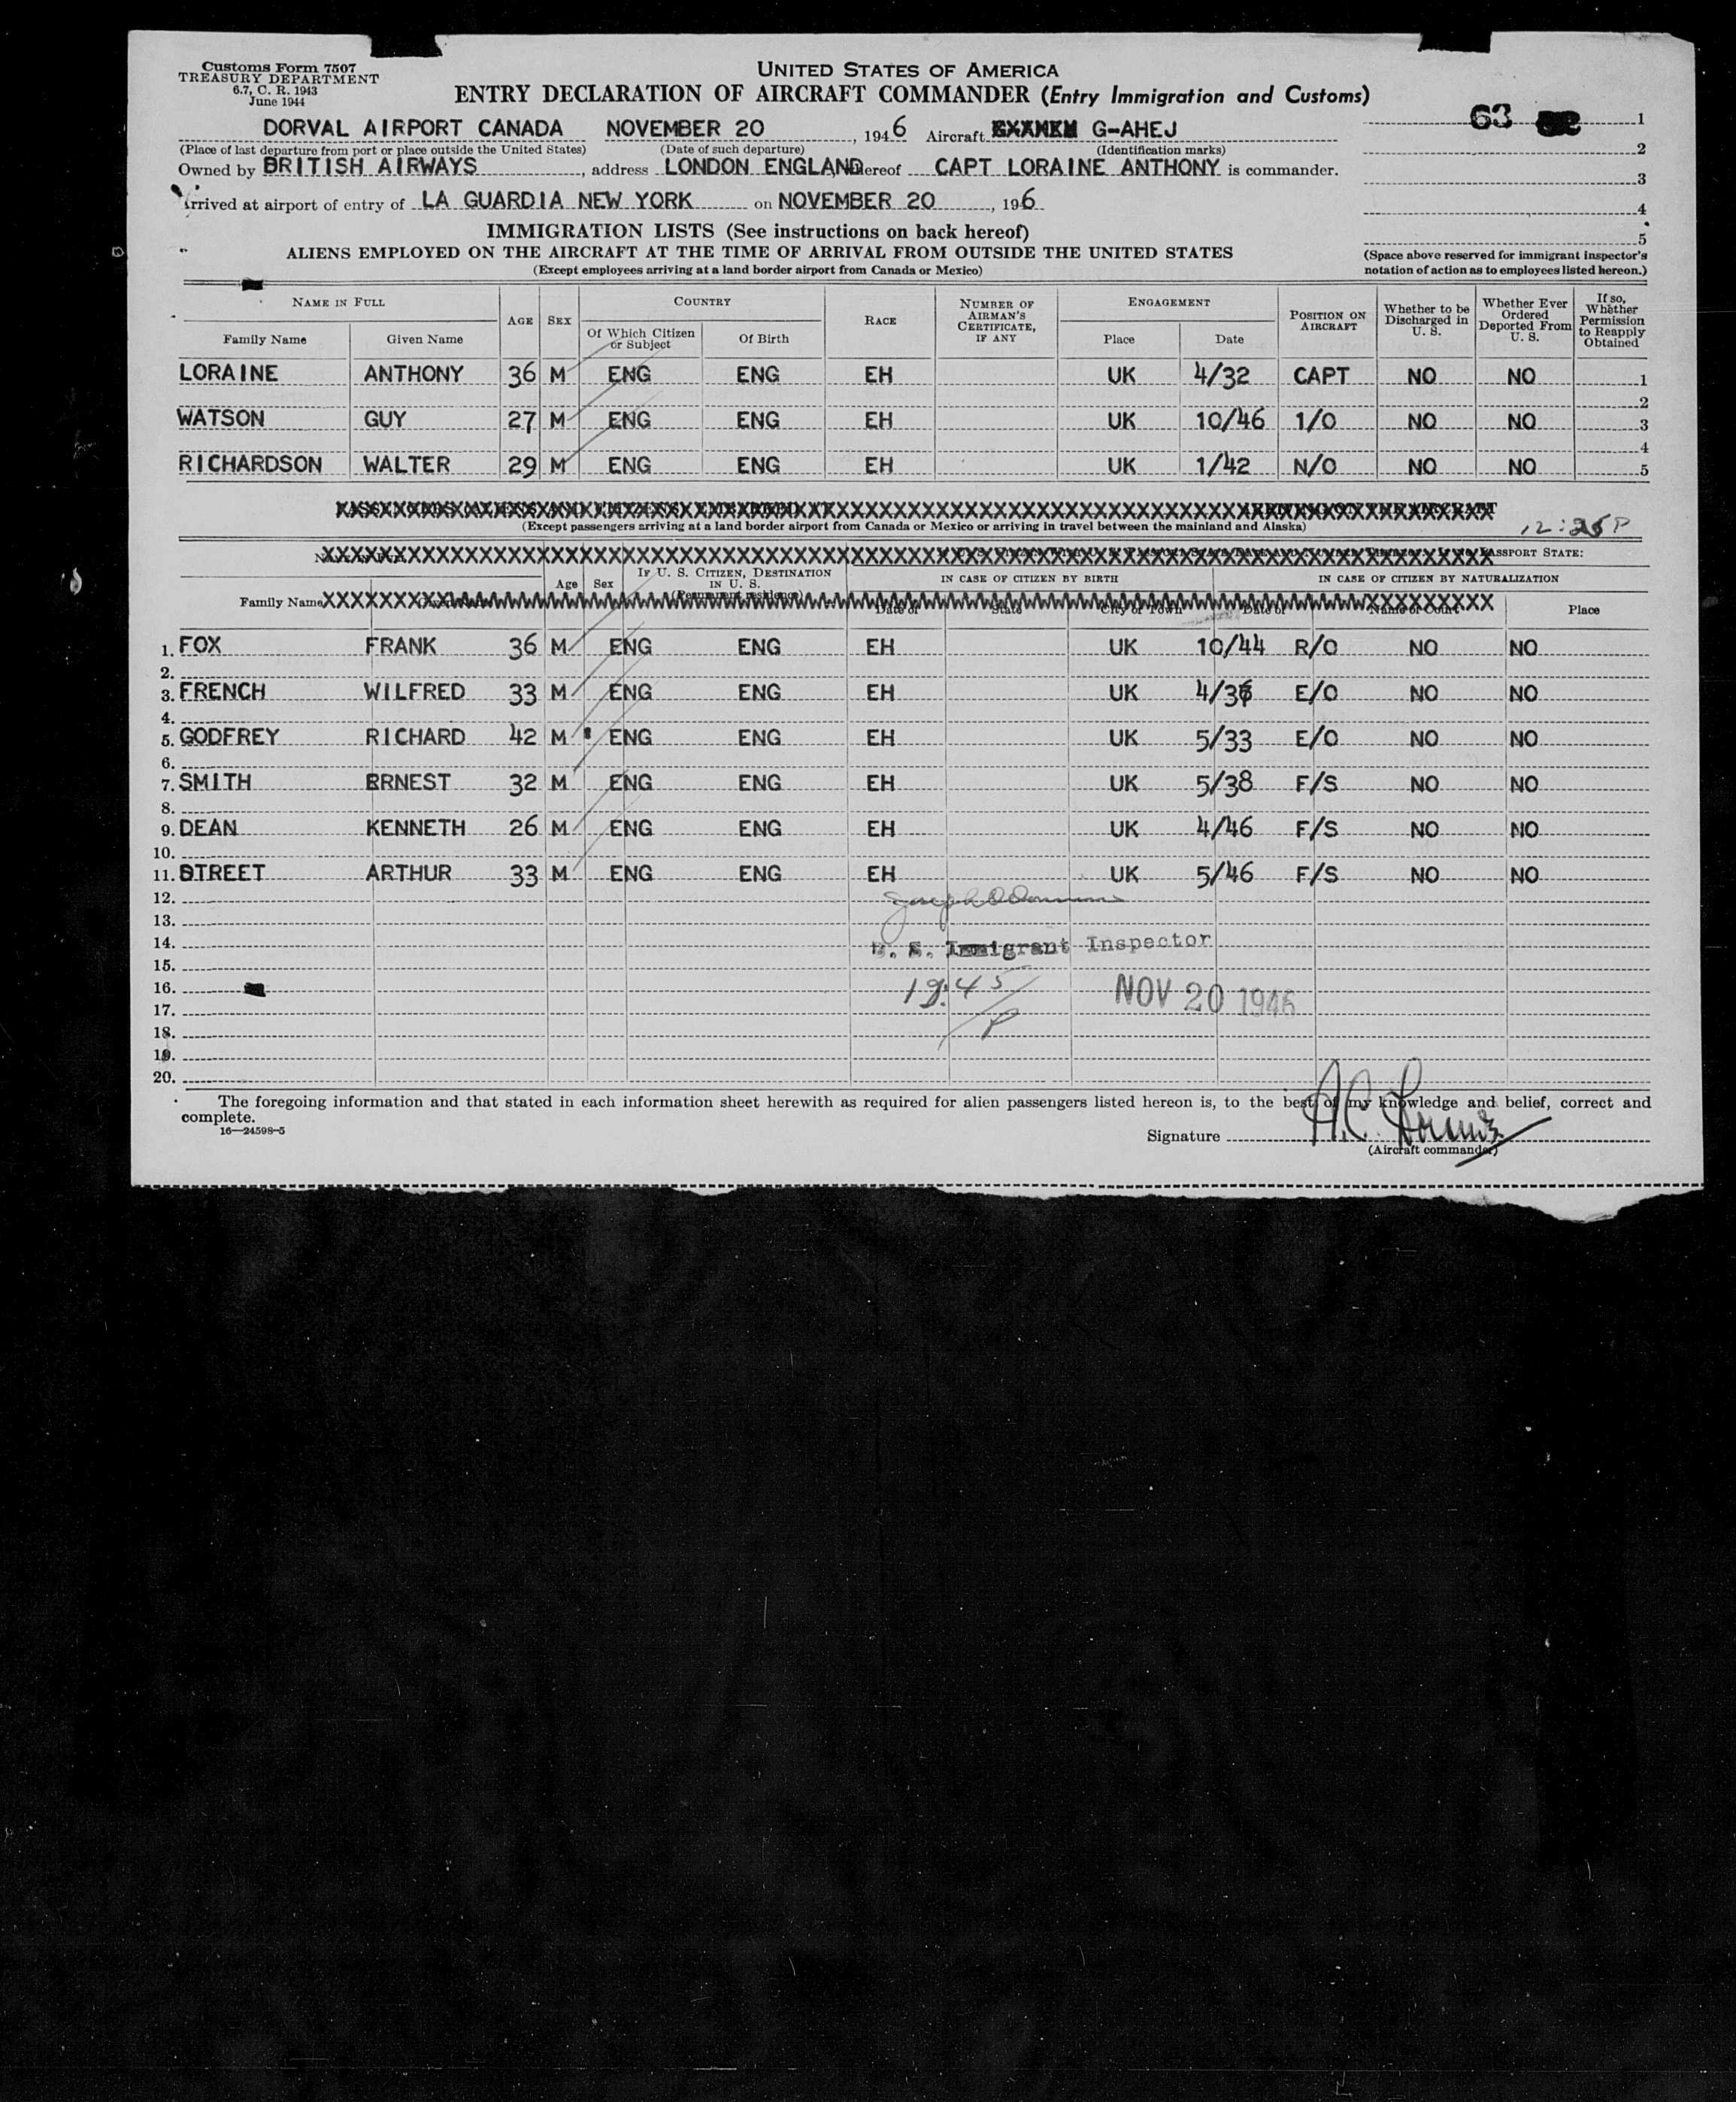 Customs Form 7507
TREASURY DEPARTMENT
6.7, C. R. 1943
June 1944
UNITED STATES OF AMERICA
ENTRY DECLARATION OF AIRCRAFT COMMANDER (Entry Immigration and Customs)
63
DORVAL AIRPORT CANADA NOVEMBER 20, 1946 Aircraft G-AHEJ
(Place of last departure from port or place outside the United States) (Date of such departure) (Identification marks)
Owned by BRITISH AIRWAYS, address LONDON ENGLAND hereof CAPT LORAINE ANTHONY is commander.
Arrived at airport of entry of LA GUARDIA NEW YORK on NOVEMBER 20, 196
1
2
3
4
5
(Space above reserved for immigrant inspector's notation of action as to employees listed hereon.)
IMMIGRATION LISTS (See instructions on back hereof)
ALIENS EMPLOYED ON THE AIRCRAFT AT THE TIME OF ARRIVAL FROM OUTSIDE THE UNITED STATES
(Except employees arriving at a land border airport from Canada or Mexico)
NAME IN FULL AGE SEX COUNTRY RACE NUMBER OF AIRMAN'S CERTIFICATE, IF ANY ENGAGEMENT POSITION ON AIRCRAFT Whether to be Discharged in U. S. Whether Ever Ordered Deported From U. S. If so, Whether Permission to Reapply Obtained
Family Name Given Name Of Which Citizen or Subject Of Birth Place Date
LORAINE ANTHONY 36 M ENG ENG EH UK 4/32 CAPT NO NO 1
2
WATSON GUY 27 M ENG ENG EH UK 10/46 1/O NO NO 3
4
RICHARDSON WALTER 29 M ENG ENG EH UK 1/42 N/O NO NO 5
PASSENGERS (ALIENS AND CITIZENS) EMBARKED AT ARRIVING ON THE AIRCRAFT
(Except passengers arriving at a land border airport from Canada or Mexico or arriving in travel between the mainland and Alaska)
12:25 P
PASSPORT STATE:
Age Sex IF U. S. CITIZEN, DESTINATION IN U. S. (Permanent residence) IN CASE OF CITIZEN BY BIRTH IN CASE OF CITIZEN BY NATURALIZATION
Family Name Given Name Date of State City or Town Date of Name of Court Place
1. FOX FRANK 36 M ENG ENG EH UK 10/44 R/O NO NO
2.
3. FRENCH WILFRED 33 M ENG ENG EH UK E/O NO NO
4.
5. GODFREY RICHARD 42 M ENG ENG EH UK 5/33 E/O NO NO
6.
7. SMITH ERNEST 32 M ENG ENG EH UK 5/38 F/S NO NO
8.
9. DEAN KENNETH 26 M ENG ENG EH UK 4/46 F/S NO NO
10.
11. STREET ARTHUR 33 M ENG ENG EH UK 5/46 F/S NO NO
12.
13.
14. U. S. Immigrant Inspector
15.
16. NOV 20 1946
17.
18.
19.
20.
The foregoing information and that stated in each information sheet herewith as required for alien passengers listed hereon is, to the best of my knowledge and belief, correct and
complete.
16—24598-5
Signature A.C. Loraine
(Aircraft commander)